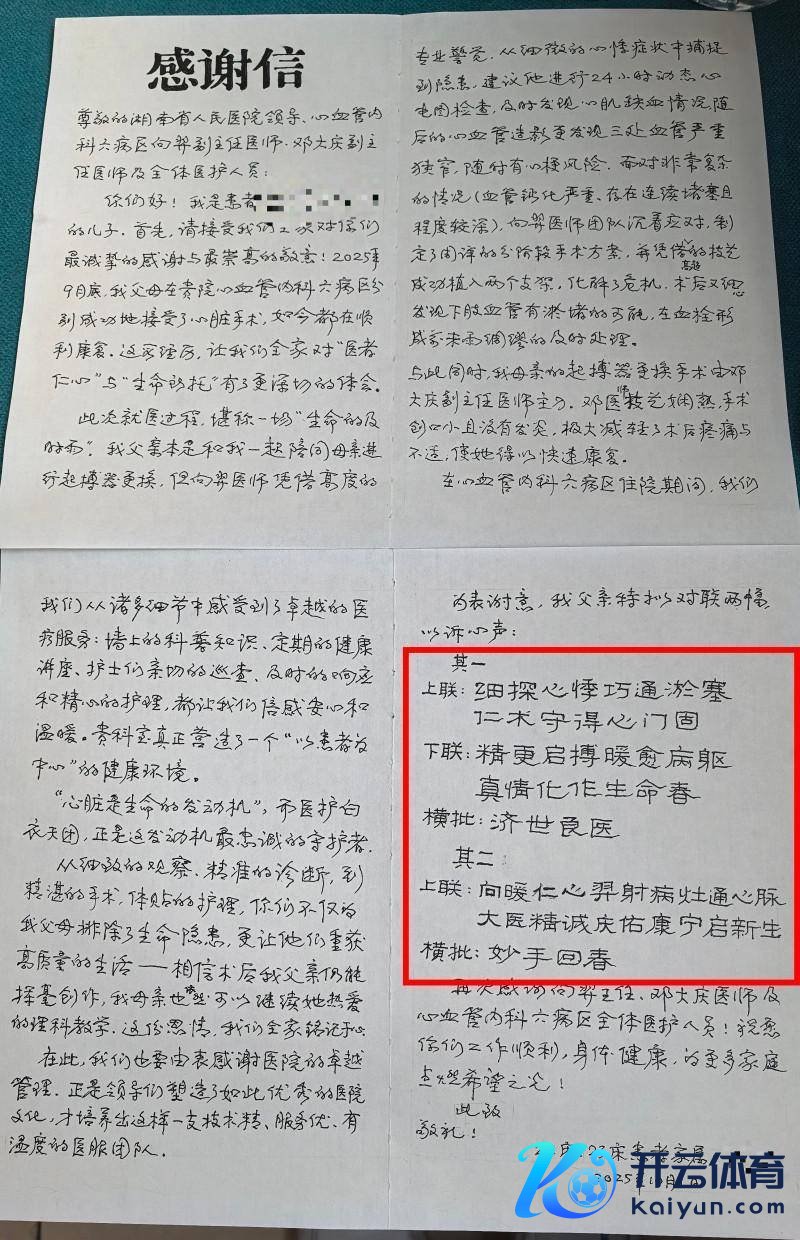 感谢信
尊敬的湖南省人民医院领导、心血管内
科六病区向羿副主任医师、邓大庆副主
任医师及全体医护人员:
你们好!我是患者
的儿子。首先,请接受我们
对你们
最诚挚的感谢与最崇高的敬意!2025年
9月底,我父母在贵院心血管内科六病区分
别成功地接受了心脏手术,如今都在顺
利康复。这家理历,让我们全家对“医者
仁心”与“生命所托”有了更深切的体会。
此次就医过程,堪称一场“生命的及
时雨”。我父亲本是和我一起陪同母亲进
行起搏器更换,但向羿医师凭借高度的
专业警觉,从细微的心悸症状中捕捉
到隐患,建议他进行24小时动态心
电图检查,及时发现心肌缺血情况,随
后的心血管造影更发现三处血管严重
狭窄,随时有心梗风险。面对非常复杂
的情况(血管钙化严重、存在连续堵塞且
程度较深),向羿医师团队沉着应对,制
定了周详的分阶段手术方案,并凭借高超的技艺
成功植入两个支架,化解了危机。术后又细心
发现下肢血管有淤堵的可能,在血栓形
成前未雨绸缪的及时处理。
与此同时,我母亲的起搏器更换手术由邓
大庆副主任医师主刀。邓医师技艺娴熟,手术
创口小且没有发炎,极大减轻了术后疼痛与
不适,使她得以快速康复。
在心血管内科六病区住院期间,我们
我们从诸多细节中感受到了卓越的医
疗服务:墙上的科普知识、定期的健康
讲座、护士们亲切的巡查、及时的响应
和精心的护理,都让我们倍感安心和
温暖。贵科室真正营造了一个“以患者为
中心”的健康环境。
“心脏是生命的发动机”,而医护白
衣天团,正是这发动机最忠诚的守护者。
从细致的观察、精准的诊断,到
精湛的手术,体贴的护理,你们不仅为
我父母排除了生命隐患,更让他们重获
高质量的生活——相信术后我父亲仍能
挥毫创作,我母亲也可以继续她热爱
的理科教学。这份恩情,我们全家铭记于心。
在此,我们也要由衷感谢医院的卓越
管理。正是领导们塑造了如此优秀的医院
文化,才培养出这样一支技术精、服务优、有
温度的医服团队。
为表谢意,我父亲特拟对联两幅,
以诉心声:
其一
上联:细探心悸巧通淤塞
仁术守得心门固
下联:精更启搏暖愈病躯
真情化作生命春
横批:济世良医
其二:
上联:向暖仁心羿射病灶通心脉
大医精诚庆佑康宁启新生
横批:妙手回春
再次感谢向羿主任、邓大庆医师及
心血管内科六病区全体医护人员!祝愿
你们工作顺利,身体健康,为更多家庭
点燃希望之光!
此致
敬礼!
床患者家属
2025年1
开云体育
kaiyun.com